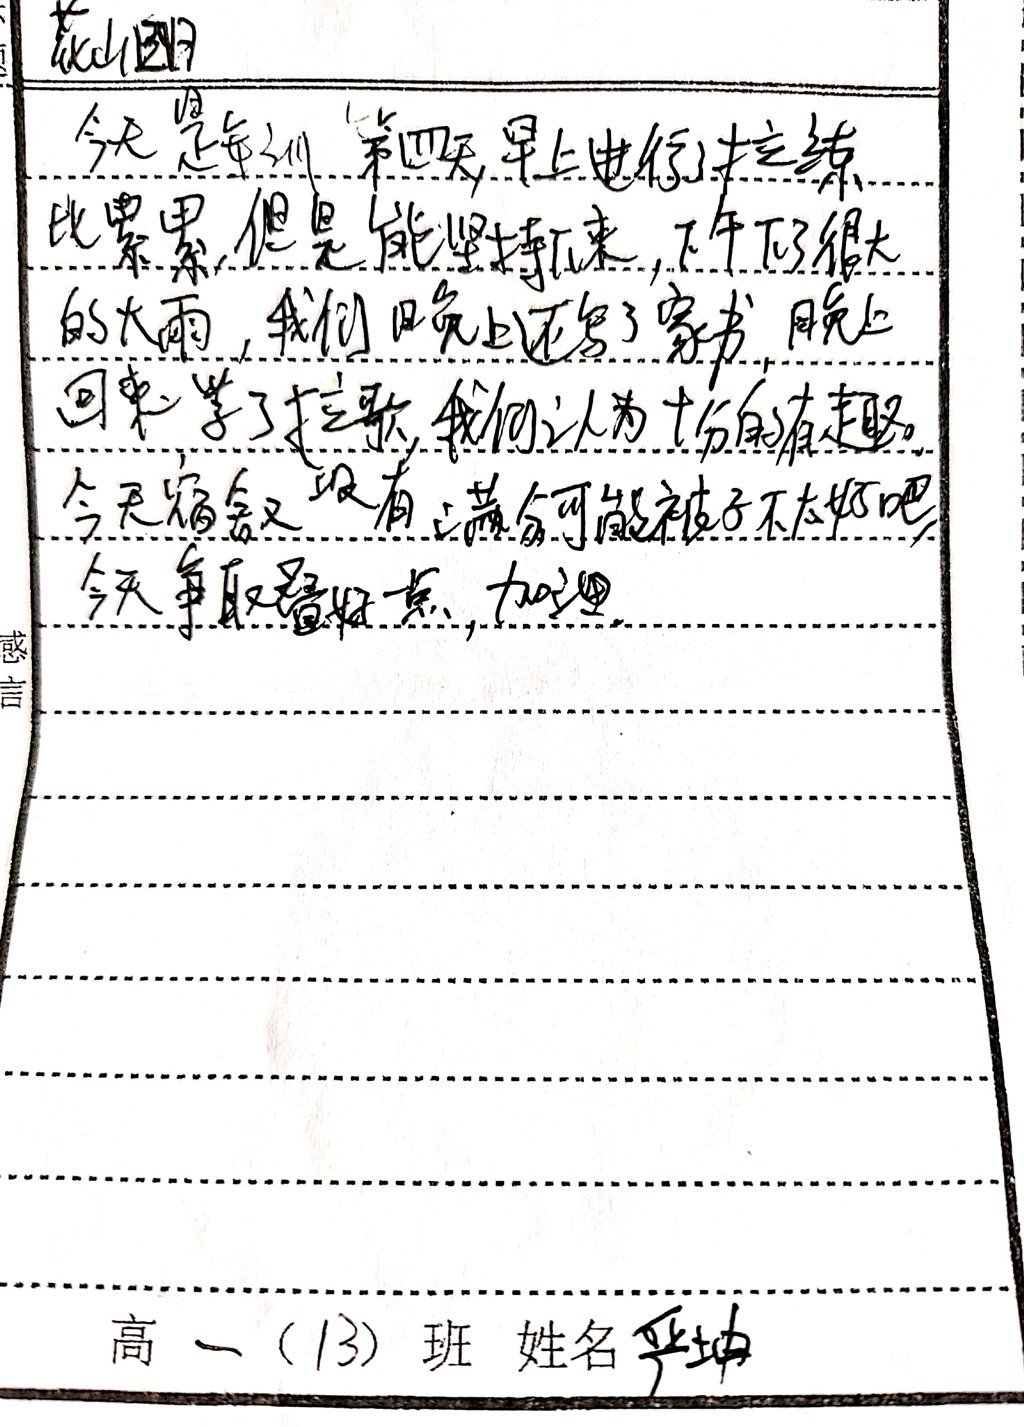 今天是军训第四天,早上进行了拉练
比累累,但是能坚持下来,下午下了很大
的大雨,我们晚上还写了家书,晚上
回来学了拉歌,我们认为十分的有趣。
今天宿舍又没有满分可能被子不太好吧,
今天争取叠好点,加油.
感言
高一(13)班 姓名 严坤